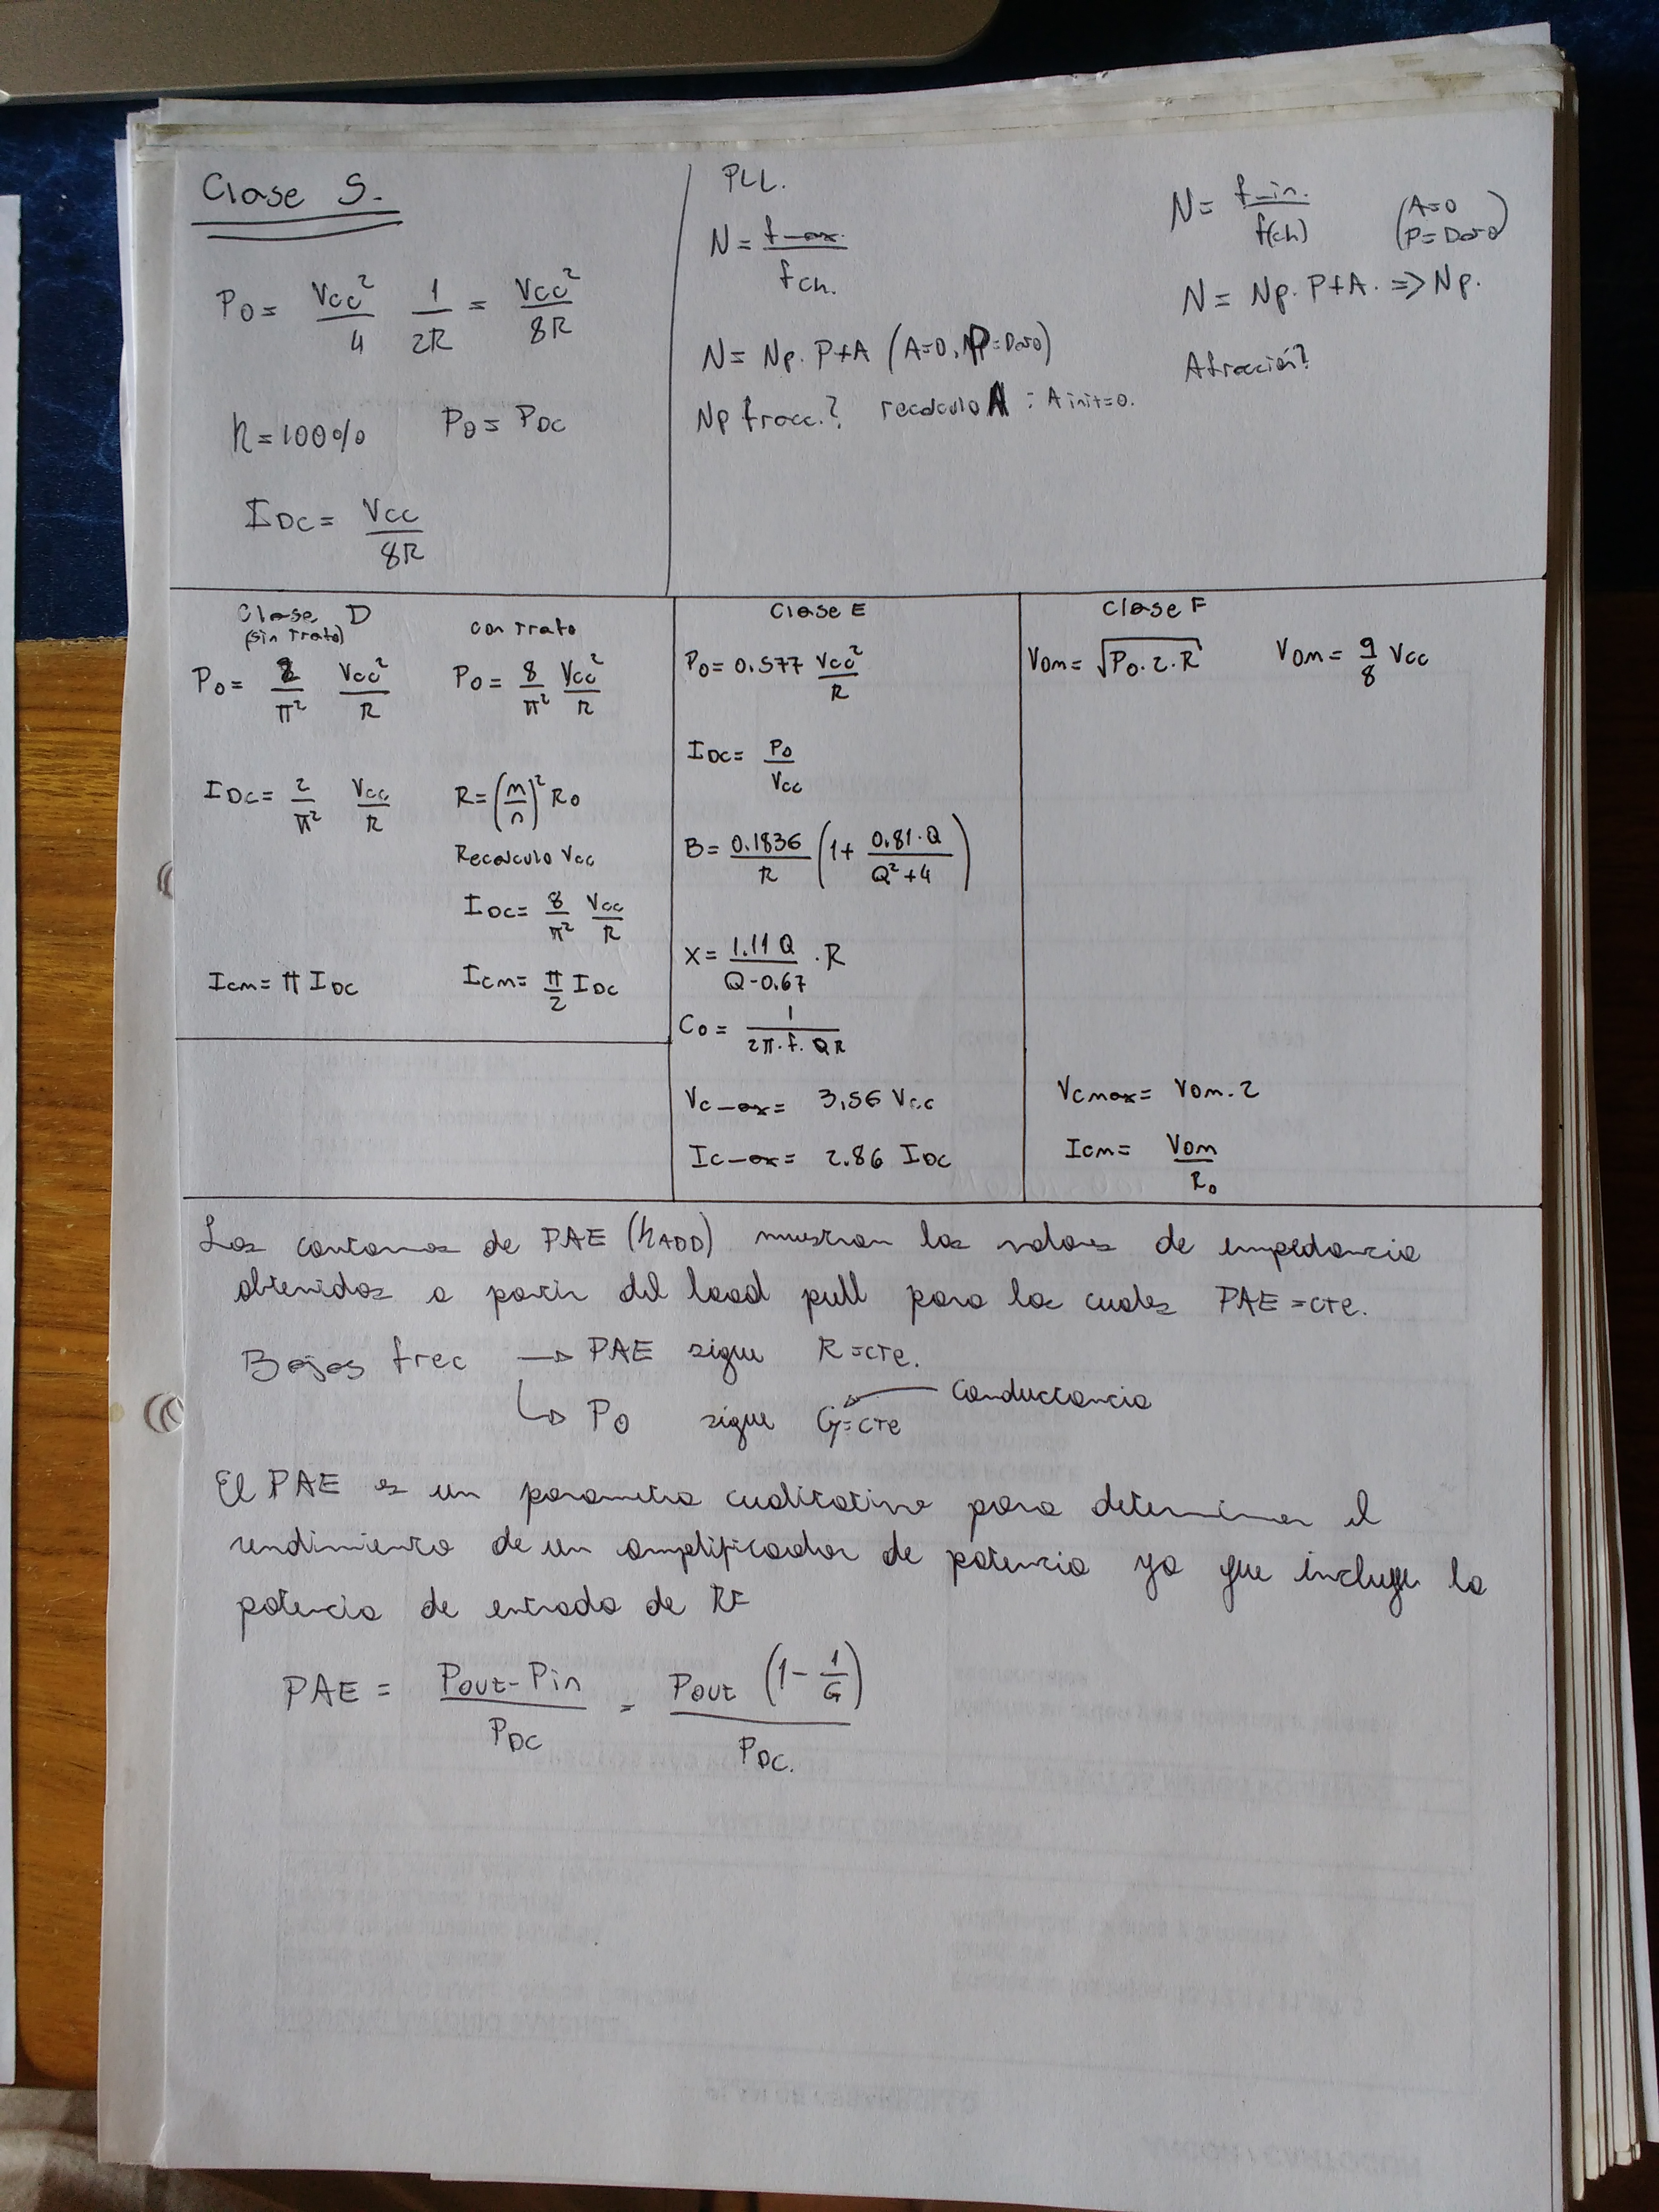 Clase S.
Po = Vcc²/4 1/2R = Vcc²/8R
η = 100% Po = PDC
IDC = Vcc/8R
PLL.
N = fmax/fch.
N = Np. P+A (A=0, P=Dato)
Np fracc.? recalculo A : A init=0.
N = fmin./f(ch) (A=0 P=Dato)
N = Np. P+A. => Np.
A fracción?
Clase D (sin Trafo)
Po = 2/π² Vcc²/R
IDC = 2/π² Vcc/R
Icm = π IDC
con Trafo
Po = 8/π² Vcc²/R
R = (m/n)² Ro
Recalculo Vcc
IDC = 8/π² Vcc/R
Icm = π/2 IDC
Clase E
Po = 0.577 Vcc²/R
IDC = Po/Vcc
B = 0.1836/R (1 + 0.81·Q/Q²+4)
X = 1.11 Q/Q-0.67 · R
Co = 1/2π·f·QR
Vcmax = 3,56 Vcc
Icmax = 2.86 IDC
Clase F
Vom = √Po.2.R Vom = 9/8 Vcc
Vcmax = Vom.2
Icm = Vom/Ro
Los contornos de PAE (ηADD) muestran los valores de impedancia
obtenidos a partir del load pull para los cuales PAE = cte.
Bajas frec → PAE sigue R = cte.
↳ Po sigue G = cte ← Conductancia
El PAE es un parametro cualitativo para determinar el
rendimiento de un amplificador de potencia ya que incluye la
potencia de entrada de RF
PAE = Pout - Pin/PDC = Pout (1 - 1/G)/PDC.